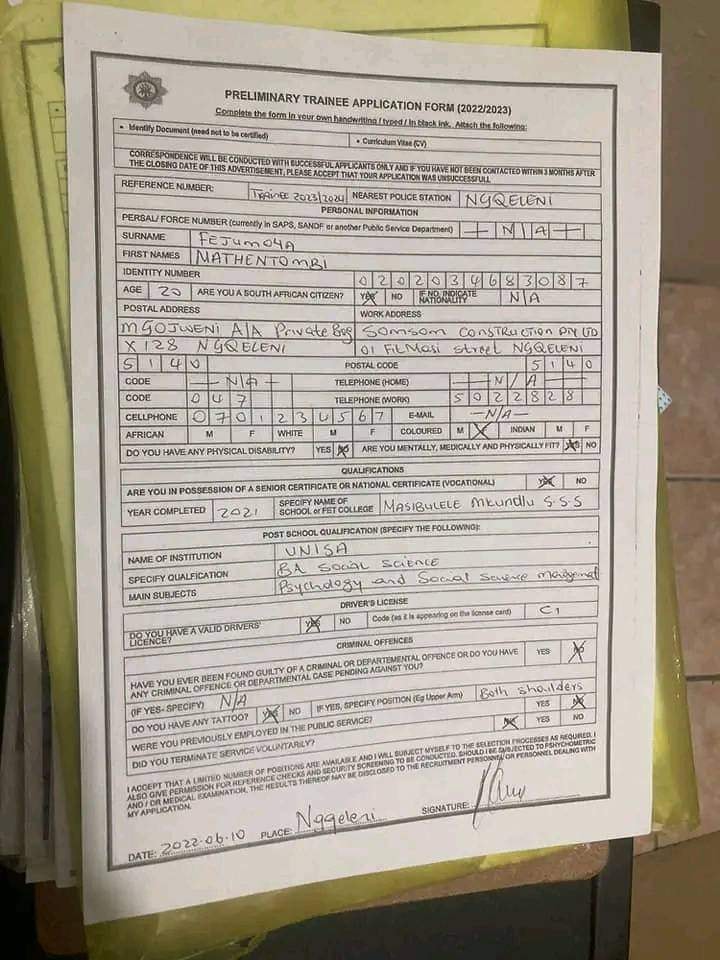 PRELIMINARY TRAINEE APPLICATION FORM (2022/2023)
Complete the form in your own handwriting / typed / in black ink. Attach the following:
• Identify Document (need not to be certified) • Curriculum Vitae (CV)
CORRESPONDENCE WILL BE CONDUCTED WITH SUCCESSFUL APPLICANTS ONLY AND IF YOU HAVE NOT BEEN CONTACTED WITHIN 3 MONTHS AFTER
THE CLOSING DATE OF THIS ADVERTISEMENT, PLEASE ACCEPT THAT YOUR APPLICATION WAS UNSUCCESSFULL
REFERENCE NUMBER: Trainee 2023/2024 NEAREST POLICE STATION NGQELENI
PERSONAL INFORMATION
PERSAL/ FORCE NUMBER (currently in SAPS, SANDF or another Public Service Department) N/A
SURNAME FEJUMO4A
FIRST NAMES NATHENTOMBI
IDENTITY NUMBER 0202034683087
AGE 20 ARE YOU A SOUTH AFRICAN CITIZEN? YES NO IF NO, INDICATE NATIONALITY N/A
POSTAL ADDRESS WORK ADDRESS
MGOJWENI A/A Private Bag SOMSOM CONSTRUCTION PTY LTD
X128 NGQELENI 01 FILMasi street NGQELENI
5140 POSTAL CODE 5140
CODE N/A TELEPHONE (HOME) N/A
CODE 047 TELEPHONE (WORK) 5022828
CELLPHONE 0701234567 E-MAIL N/A
AFRICAN M F WHITE M F COLOURED M INDIAN M F
DO YOU HAVE ANY PHYSICAL DISABILITY? YES NO ARE YOU MENTALLY, MEDICALLY AND PHYSICALLY FIT? YES NO
QUALIFICATIONS
ARE YOU IN POSSESSION OF A SENIOR CERTIFICATE OR NATIONAL CERTIFICATE (VOCATIONAL) YES NO
YEAR COMPLETED 2021 SPECIFY NAME OF SCHOOL or FET COLLEGE MASIBULELE Mkundlu S.S.S
POST SCHOOL QUALIFICATION (SPECIFY THE FOLLOWING):
NAME OF INSTITUTION UNISA
SPECIFY QUALFICATION BA SOCIAL SCIENCE
MAIN SUBJECTS Psychology and Social Science
DRIVER'S LICENSE
DO YOU HAVE A VALID DRIVERS' LICENCE? YES NO Code (as it is appearing on the license card) C1
CRIMINAL OFFENCES
HAVE YOU EVER BEEN FOUND GUILTY OF A CRIMINAL OR DEPARTEMENTAL OFFENCE OR DO YOU HAVE YES NO
ANY CRIMINAL OFFENCE OR DEPARTMENTAL CASE PENDING AGAINST YOU?
(IF YES- SPECIFY) N/A
DO YOU HAVE ANY TATTOO? YES NO IF YES, SPECIFY POSITION (Eg Upper Arm) Both shoulders
WERE YOU PREVIOUSLY EMPLOYED IN THE PUBLIC SERVICE? YES NO
DID YOU TERMINATE SERVICE VOLUNTARILY? YES NO
I ACCEPT THAT A LIMITED NUMBER OF POSITIONS ARE AVAILABLE AND I WILL SUBJECT MYSELF TO THE SELECTION PROCESSES AS REQUIRED. I
ALSO GIVE PERMISSION FOR REFERENCE CHECKS AND SECURITY SCREENING TO BE CONDUCTED. SHOULD I BE SUBJECTED TO PSHYCHOMETRIC
AND / OR MEDICAL EXAMINATION, THE RESULTS THEREOF MAY BE DISCLOSED TO THE RECRUITMENT PERSONNEL OR PERSONNEL DEALING WITH
MY APPLICATION.
DATE: 2022-06-10 PLACE: Ngqeleni SIGNATURE: